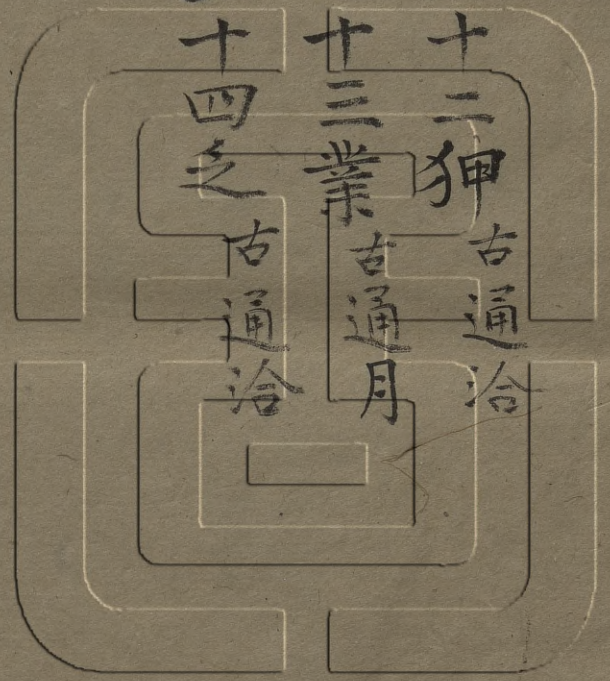 十二狎古通洽
十三業古通月
十四乏古通洽